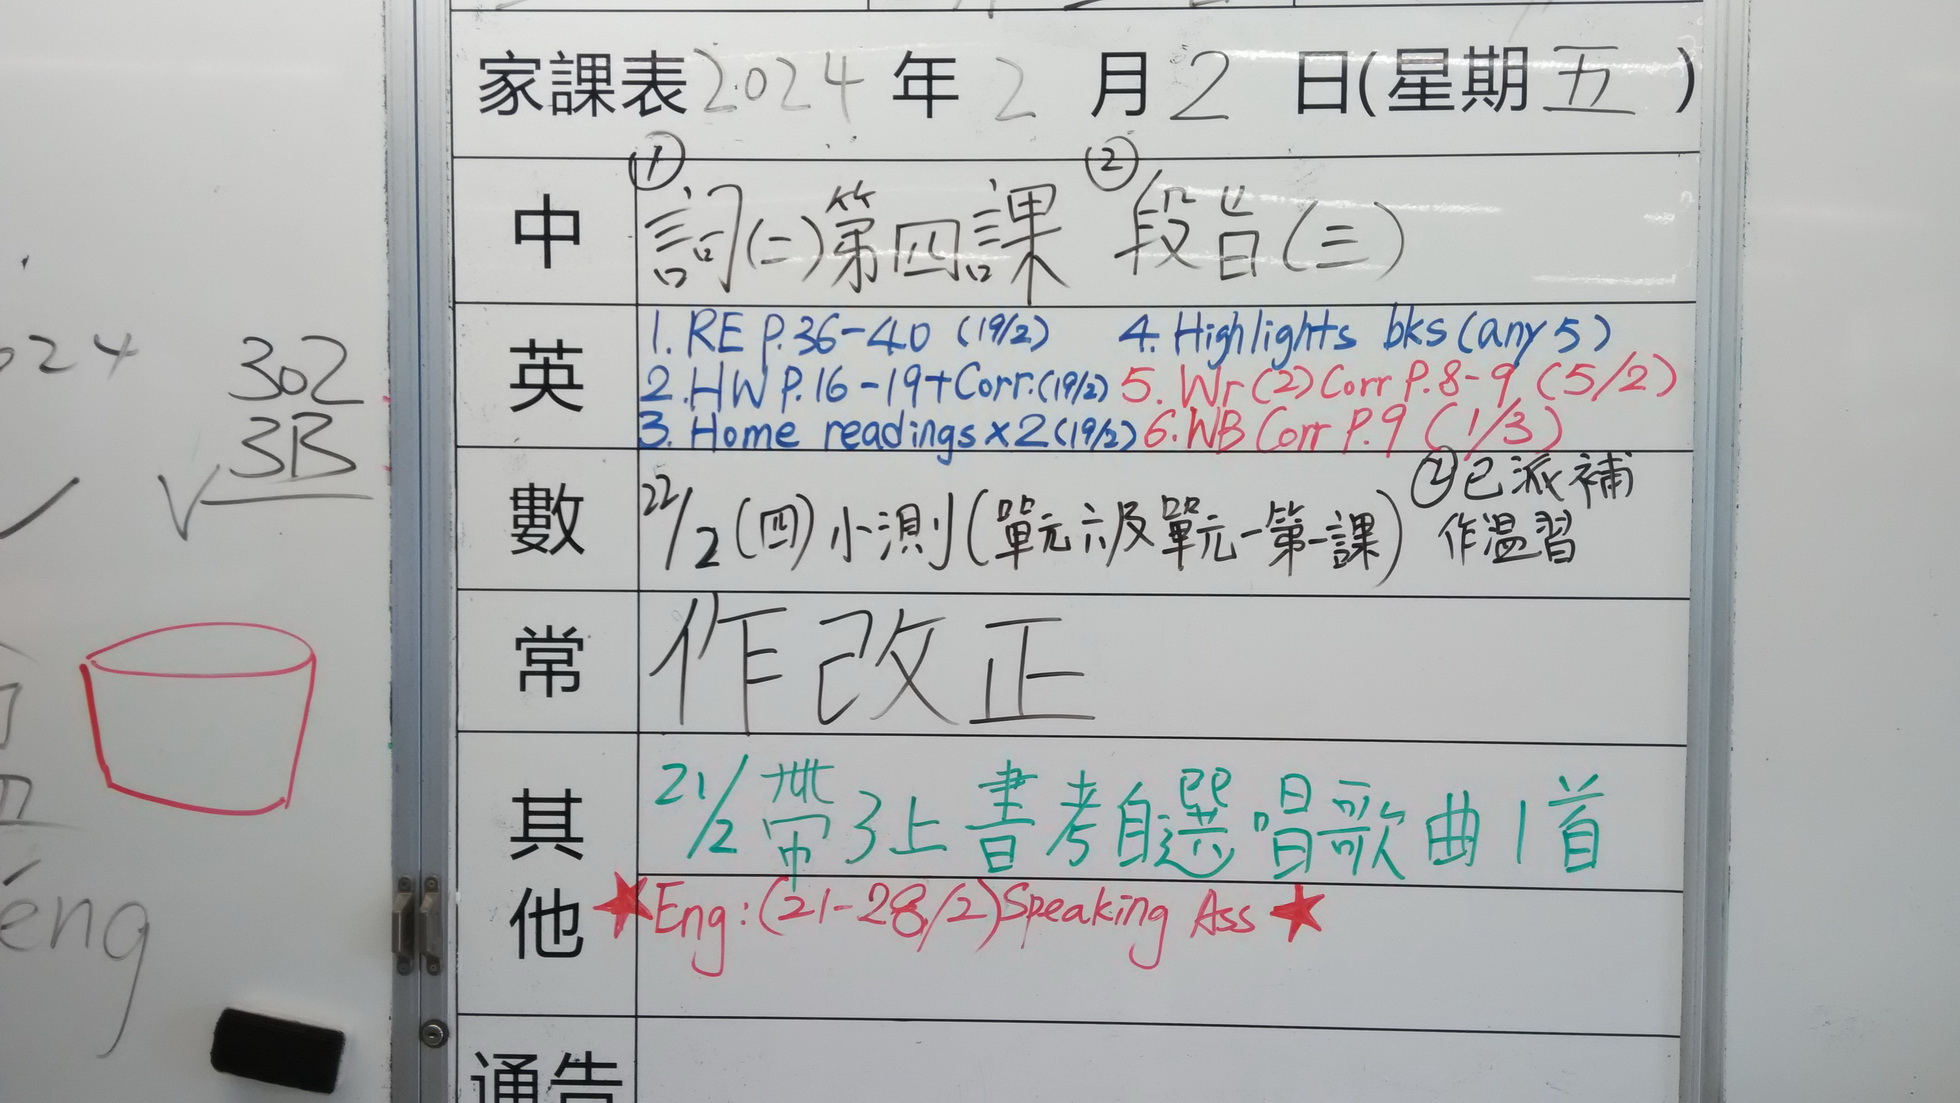 家課表 2024 年 2 月 2 日(星期 五 )
中 ① 詞(二)第四課 ② 段旨(三)
英 1. RE P.36-40 (19/2) 4. Highlights bks (any 5)
2. HW P.16-19+Corr. (19/2) 5. Wr (2) Corr P.8-9 (5/2)
3. Home readings x2 (19/2) 6. WB Corr P.9 (1/3)
數 22/2 (四) 小測 (單元六及單元一第一課) ② 已派補
作溫習
常 作改正
其他 21/2 帶3上書考自選唱歌曲1首
★Eng: (21-28/2) Speaking Ass ★
通告
024
302
3B
éng